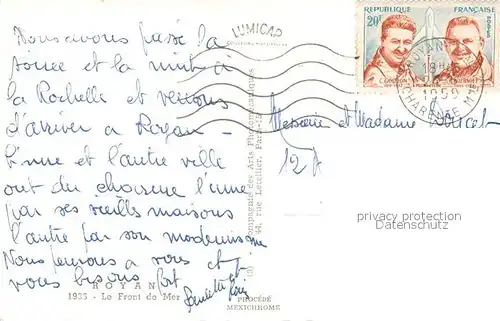 LUMICAP
RÉPUBLIQUE FRANÇAISE
20F
POSTES
C. GOUJON
ROYAN
CHARENTE MME
Nous avons passé la
soirée et la nuit à
la Rochelle et venons
d'arriver à Royan -
L'une et l'autre ville
ont du charme l'une
par ses vieilles maisons
l'autre par son modernisme
Nous pensons à vous et
vous bisons fort
Messieur et Madame
12 A
privacy protection by
AnticStore
Compagnie des Arts Photomécaniques
44, rue Letellier, Paris
ROYAN
1935 - Le Front de Mer
PROCÉDÉ
MEXICHROME